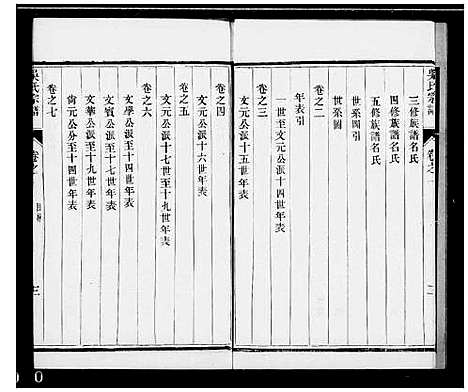 吳氏宗譜
卷之一
二
三修族譜名氏
四修族譜名氏
五修族譜名氏
世系閥引
世系圖
卷之二
年表引
一世至文元公派十四世年表
卷之三
文元公派十五世年表
卷之四
文元公派十六世年表
卷之五
文元公派十七世至十九世年表
卷之六
文學公派至十四世年表
文賓公派至十九世年表
文華公派至十九世年表
尙元公房至十四世年表
卷之七
吳氏宗譜
卷之一
目錄
三
0 0